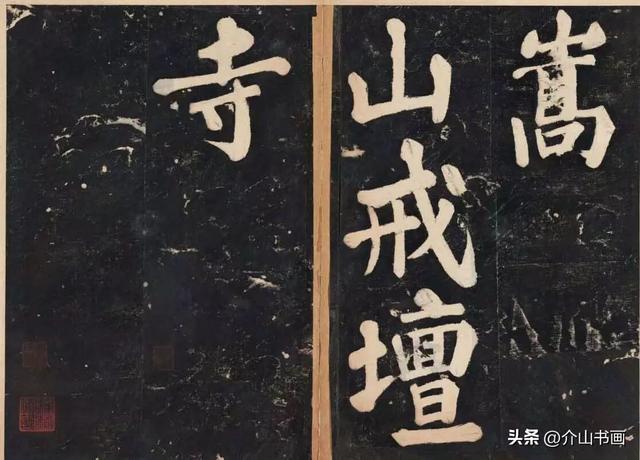 嵩
山戒壇
寺
头条 @介山书画